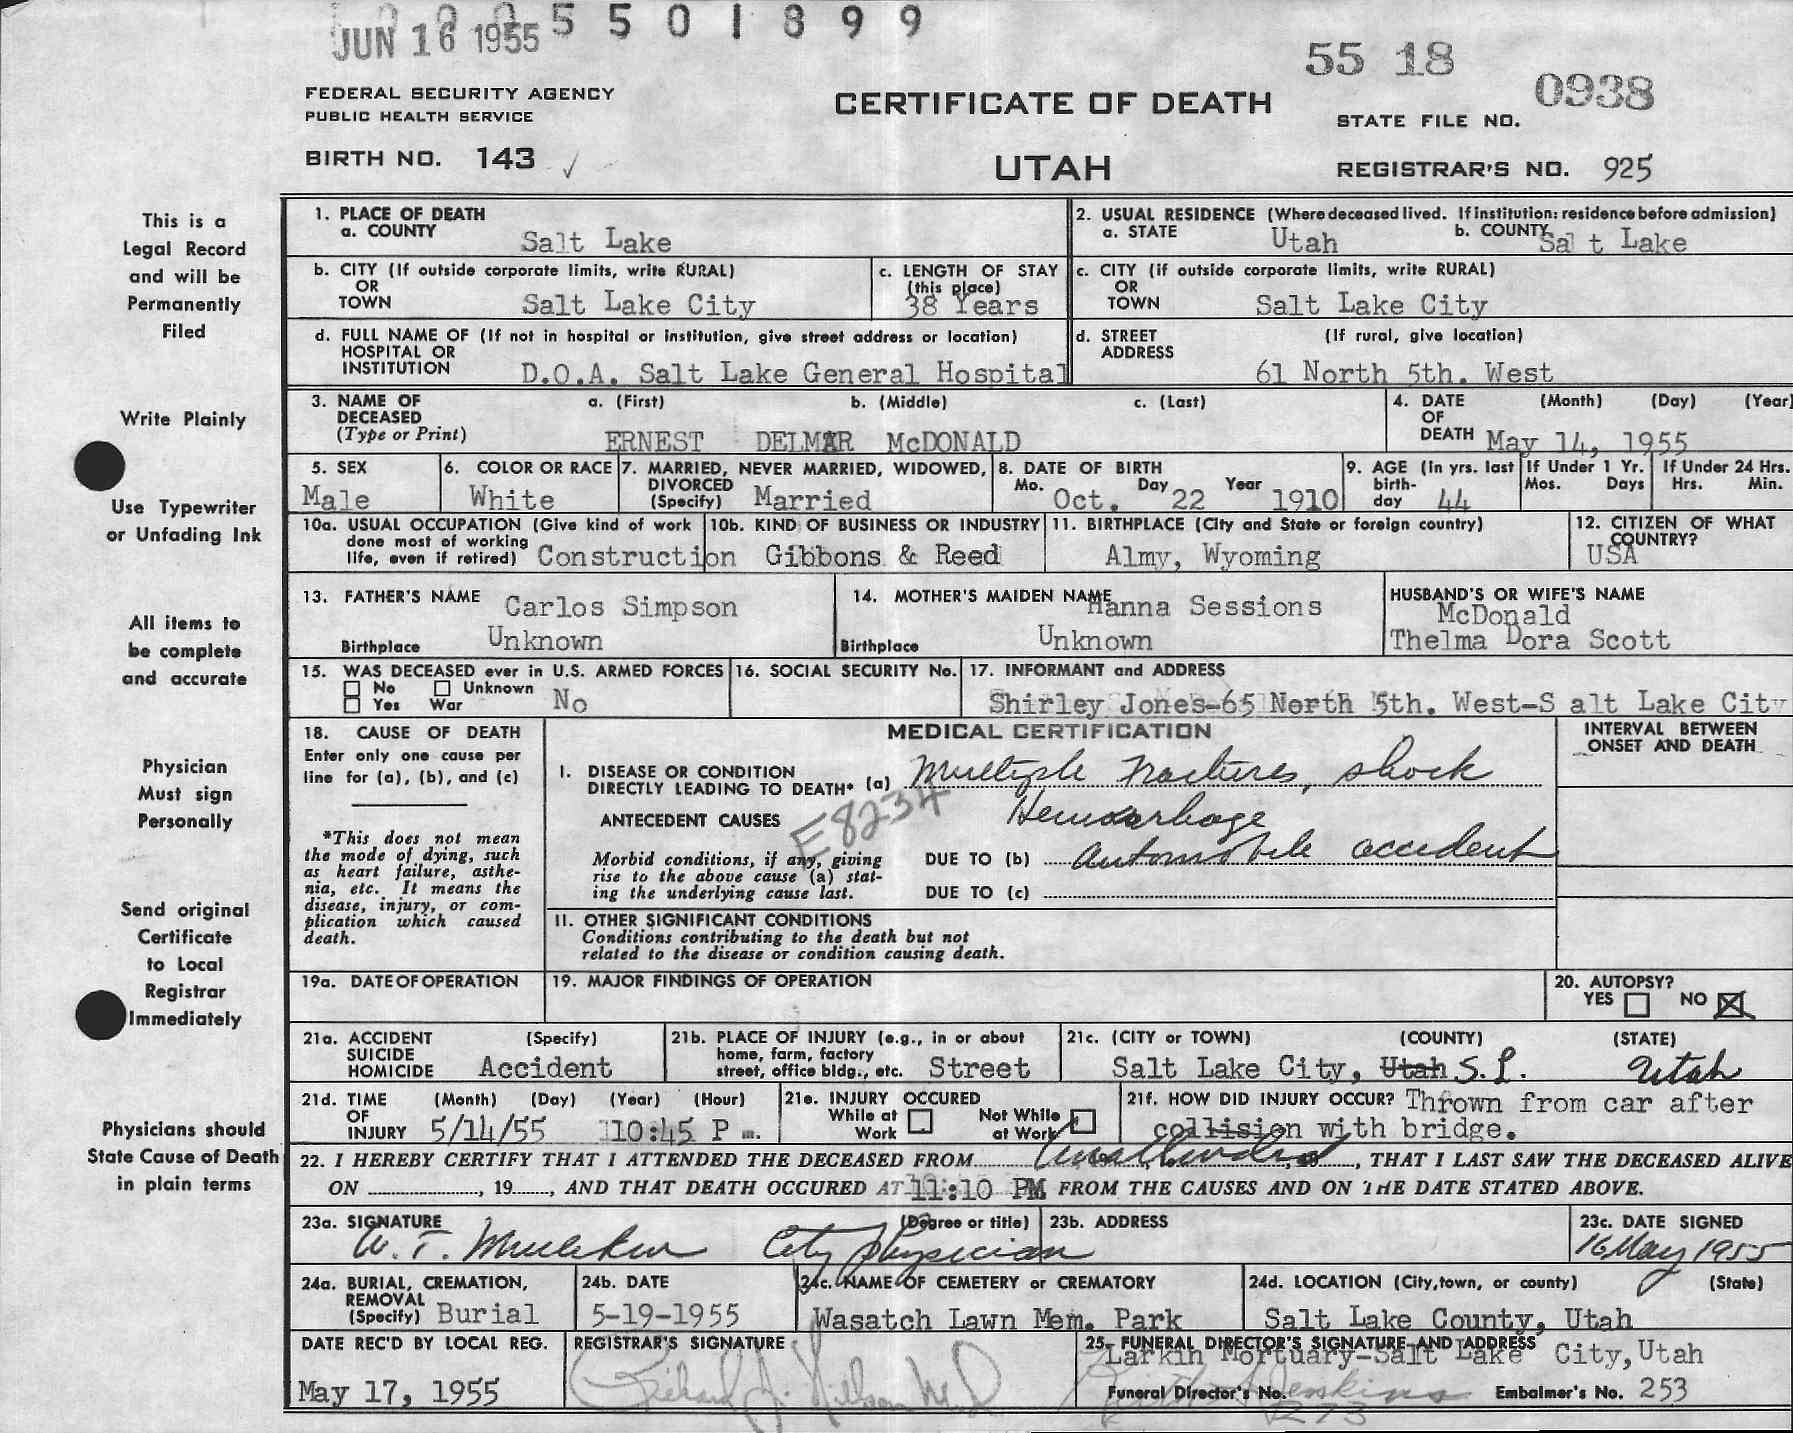 JUN 16 1955 5 5 0 1 8 9 9
55 18
0938
FEDERAL SECURITY AGENCY
PUBLIC HEALTH SERVICE
CERTIFICATE OF DEATH
STATE FILE NO.
BIRTH NO. 143 ✓
UTAH
REGISTRAR'S NO. 925
This is a
Legal Record
and will be
Permanently
Filed
Write Plainly
Use Typewriter
or Unfading Ink
All items to
be complete
and accurate
Physician
Must sign
Personally
Send original
Certificate
to Local
Registrar
Immediately
Physicians should
State Cause of Death
in plain terms
1. PLACE OF DEATH
a. COUNTY Salt Lake
2. USUAL RESIDENCE (Where deceased lived. If institution: residence before admission)
a. STATE Utah b. COUNTY Sa t Lake
b. CITY (If outside corporate limits, write RURAL)
OR
TOWN Salt Lake City
c. LENGTH OF STAY
(this place)
38 Years
c. CITY (if outside corporate limits, write RURAL)
OR
TOWN Salt Lake City
d. FULL NAME OF (If not in hospital or institution, give street address or location)
HOSPITAL OR
INSTITUTION D.O.A. Salt Lake General Hospital
d. STREET (If rural, give location)
ADDRESS
61 North 5th. West
3. NAME OF a. (First) b. (Middle) c. (Last)
DECEASED
(Type or Print) ERNEST DELMAR McDONALD
4. DATE (Month) (Day) (Year)
OF
DEATH May 14, 1955
5. SEX
Male
6. COLOR OR RACE
White
7. MARRIED, NEVER MARRIED, WIDOWED,
DIVORCED
(Specify) Married
8. DATE OF BIRTH
Mo. Oct. Day 22 Year 1910
9. AGE (In yrs. last
birth-
day 44
If Under 1 Yr.
Mos. Days
If Under 24 Hrs.
Hrs. Min.
10a. USUAL OCCUPATION (Give kind of work
done most of working
life, even if retired) Construction
10b. KIND OF BUSINESS OR INDUSTRY
Gibbons & Reed
11. BIRTHPLACE (City and State or foreign country)
Almy, Wyoming
12. CITIZEN OF WHAT
COUNTRY?
USA
13. FATHER'S NAME Carlos Simpson
Birthplace Unknown
14. MOTHER'S MAIDEN NAME Hanna Sessions
Birthplace Unknown
HUSBAND'S OR WIFE'S NAME
McDonald
Thelma Dora Scott
15. WAS DECEASED ever in U.S. ARMED FORCES
No Unknown
Yes War No
16. SOCIAL SECURITY No.
17. INFORMANT and ADDRESS
Shirley Jones-65 North 5th. West-S alt Lake City
18. CAUSE OF DEATH
Enter only one cause per
line for (a), (b), and (c)
*This does not mean
the mode of dying, such
as heart failure, asthe-
nia, etc. It means the
disease, injury, or com-
plication which caused
death.
MEDICAL CERTIFICATION
INTERVAL BETWEEN
ONSET AND DEATH
I. DISEASE OR CONDITION
DIRECTLY LEADING TO DEATH* (a) Multiple Fractures, shock
Hemorrhage
E8234
ANTECEDENT CAUSES
Morbid conditions, if any, giving
rise to the above cause (a) stat-
ing the underlying cause last.
DUE TO (b) Automobile accident
DUE TO (c)
II. OTHER SIGNIFICANT CONDITIONS
Conditions contributing to the death but not
related to the disease or condition causing death.
19a. DATE OF OPERATION
19. MAJOR FINDINGS OF OPERATION
20. AUTOPSY?
YES NO X
21a. ACCIDENT (Specify)
SUICIDE
HOMICIDE Accident
21b. PLACE OF INJURY (e.g., in or about
home, farm, factory
street, office bldg., etc. Street
21c. (CITY or TOWN) (COUNTY) (STATE)
Salt Lake City, Utah S.L. Utah
21d. TIME (Month) (Day) (Year) (Hour)
OF
INJURY 5/14/55 10:45 P m.
21e. INJURY OCCURED
While at Work Not While at Work
21f. HOW DID INJURY OCCUR? Thrown from car after
collision with bridge.
22. I HEREBY CERTIFY THAT I ATTENDED THE DECEASED FROM Unattended, THAT I LAST SAW THE DECEASED ALIVE
ON , 19 , AND THAT DEATH OCCURED AT 11:10 PM FROM THE CAUSES AND ON THE DATE STATED ABOVE.
23a. SIGNATURE (Degree or title)
W. T. City Physician
23b. ADDRESS
23c. DATE SIGNED
16 May 1955
24a. BURIAL, CREMATION,
REMOVAL
(Specify) Burial
24b. DATE
5-19-1955
24c. NAME OF CEMETERY or CREMATORY
Wasatch Lawn Mem. Park
24d. LOCATION (City, town, or county) (State)
Salt Lake County, Utah
DATE REC'D BY LOCAL REG.
May 17, 1955
REGISTRAR'S SIGNATURE
Richard J. Nillson M.D
25. FUNERAL DIRECTOR'S SIGNATURE AND ADDRESS
Larkin Mortuary-Salt Lake City, Utah
Funeral Director's No. Jenkins Embalmer's No. 253
R 73